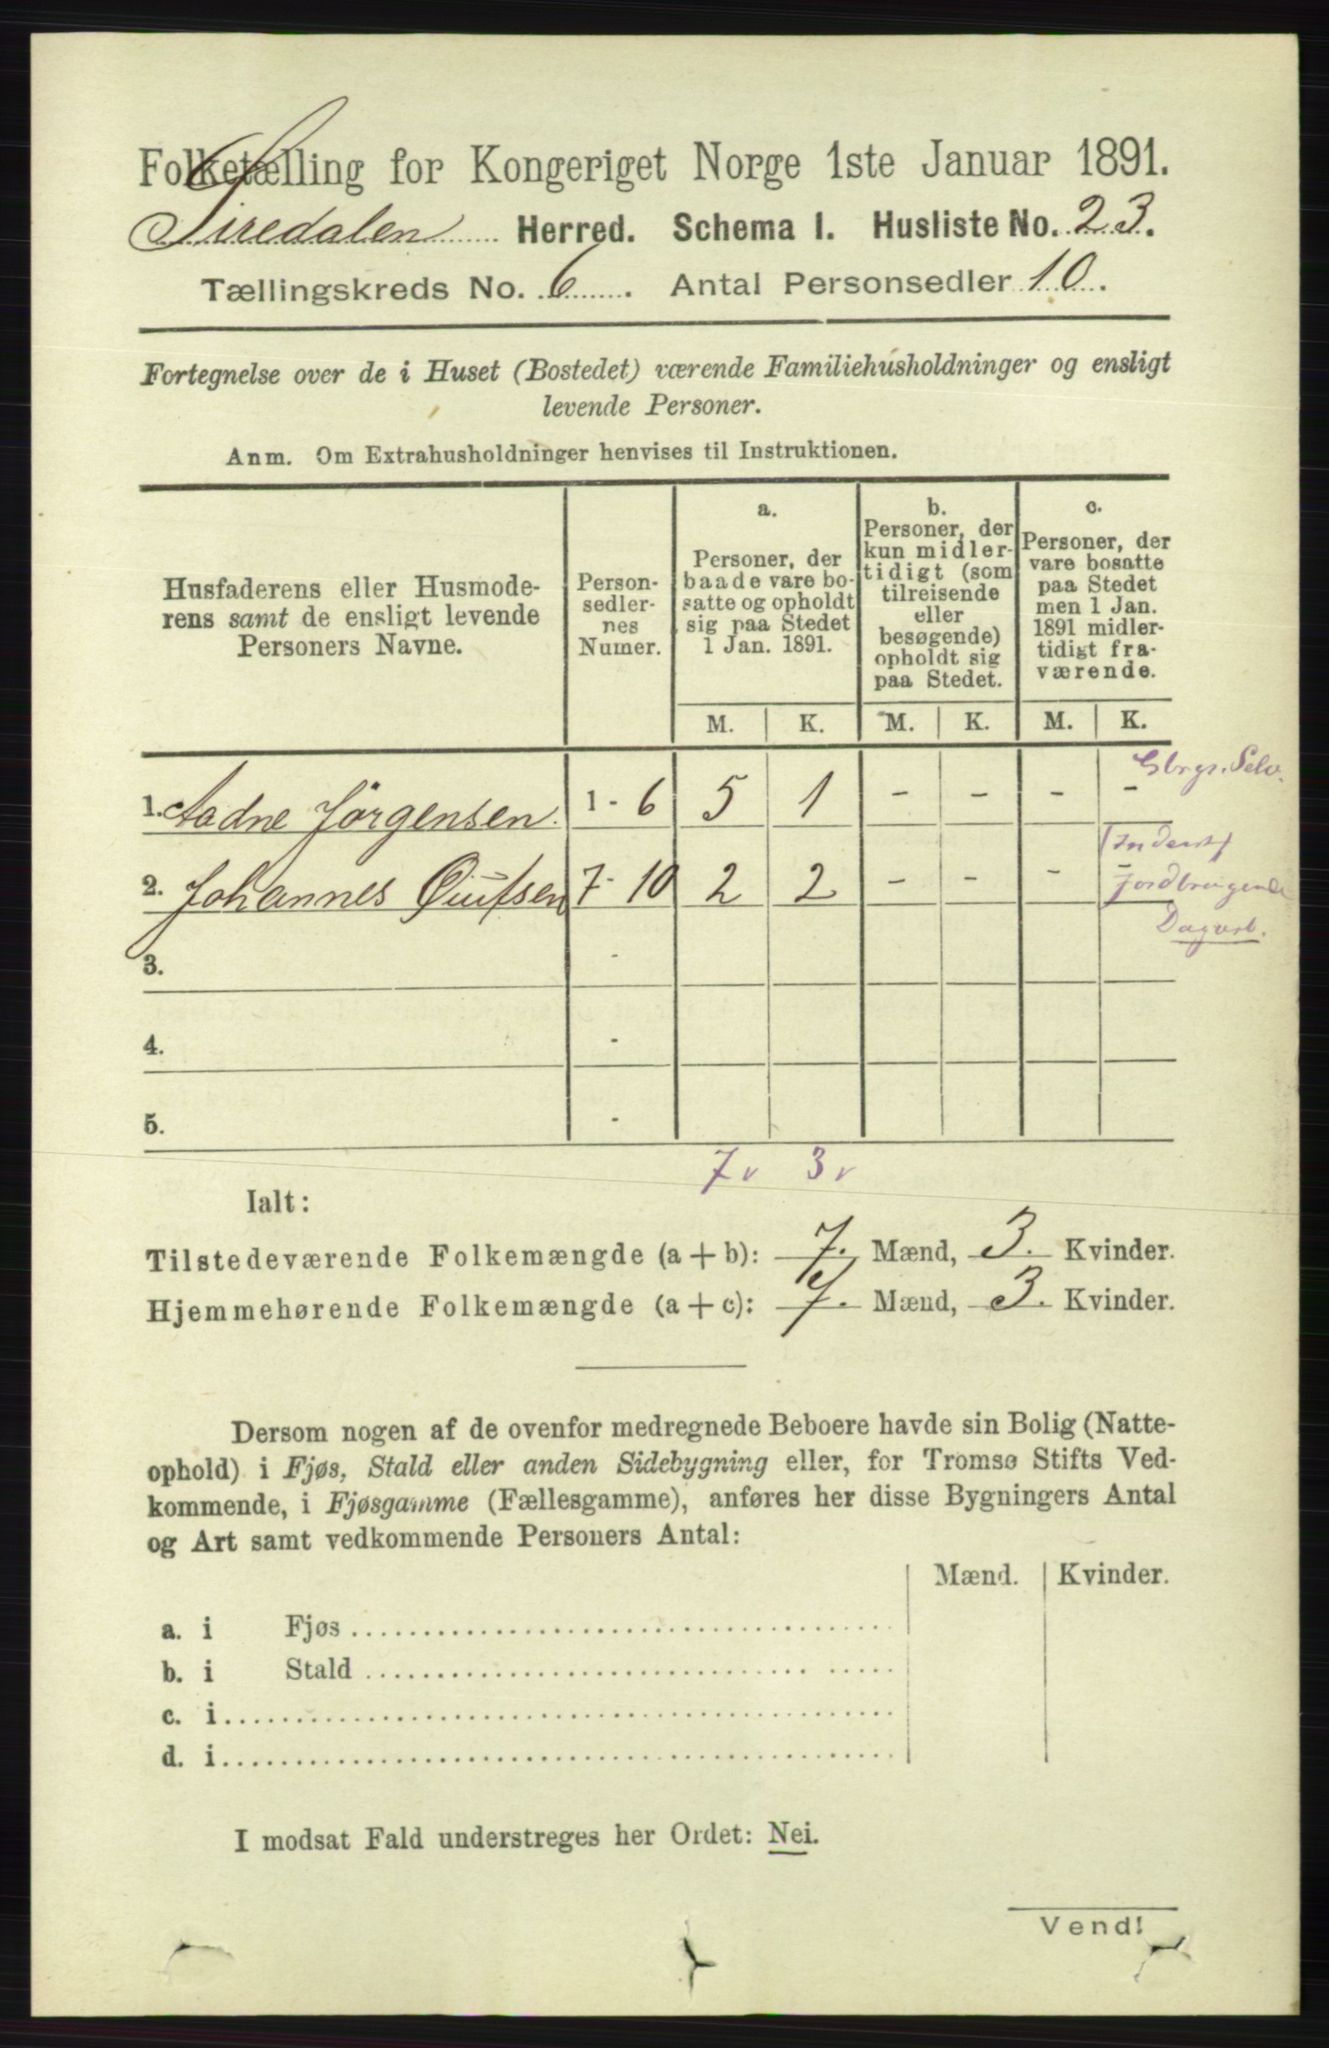 Folketælling for Kongeriget Norge 1ste Januar 1891.
Siredalen Herred. Schema I. Husliste No. 23.
Tællingskreds No. 6. Antal Personsedler 10.
Fortegnelse over de i Huset (Bostedet) værende Familiehusholdninger og ensligt
levende Personer.
Anm. Om Extrahusholdninger henvises til Instruktionen.
Husfaderens eller Husmode-
rens samt de ensligt levende
Personers Navne.
Person-
sedler-
nes
Numer.
a.
Personer, der
baade vare bo-
satte og opholdt
sig paa Stedet
1 Jan. 1891.
b.
Personer, der
kun midler-
tidigt (som
tilreisende
eller
besøgende)
opholdt sig
paa Stedet.
c.
Personer, der
vare bosatte
paa Stedet
men 1 Jan.
1891 midler-
tidigt fra-
værende.
M. K. M. K. M. K.
Gbrgr. Selv.
1. Aadne Jörgensen. 1 - 6 5 1 - - - -
2. Johannes 7 - 10 2 2 - - - -
Inderst
Jordbrugende
Dagarb.
3. -
4. -
5. -
7 v 3 v
Ialt:
Tilstedeværende Folkemængde (a + b): 7. Mænd, 3. Kvinder.
Hjemmehørende Folkemængde (a + c): 7. Mænd, 3. Kvinder.
Dersom nogen af de ovenfor medregnede Beboere havde sin Bolig (Natte-
ophold) i Fjøs, Stald eller anden Sidebygning eller, for Tromsø Stifts Ved-
kommende, i Fjøsgamme (Fællesgamme), anføres her disse Bygningers Antal
og Art samt vedkommende Personers Antal:
Mænd. Kvinder.
a. i Fjøs
b. i Stald
c. i
d. i
I modsat Fald understreges her Ordet: Nei.
Vend!